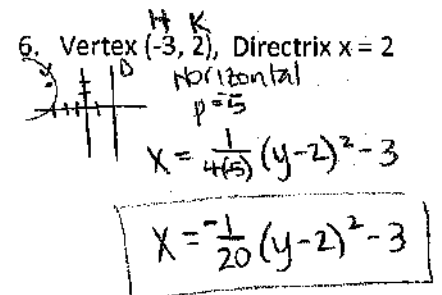 H K
6. Vertex (-3, 2), Directrix x = 2
D
Horizontal
p=-5
x = 1/4(-5) (y-2)² - 3
x = -1/20 (y-2)² - 3